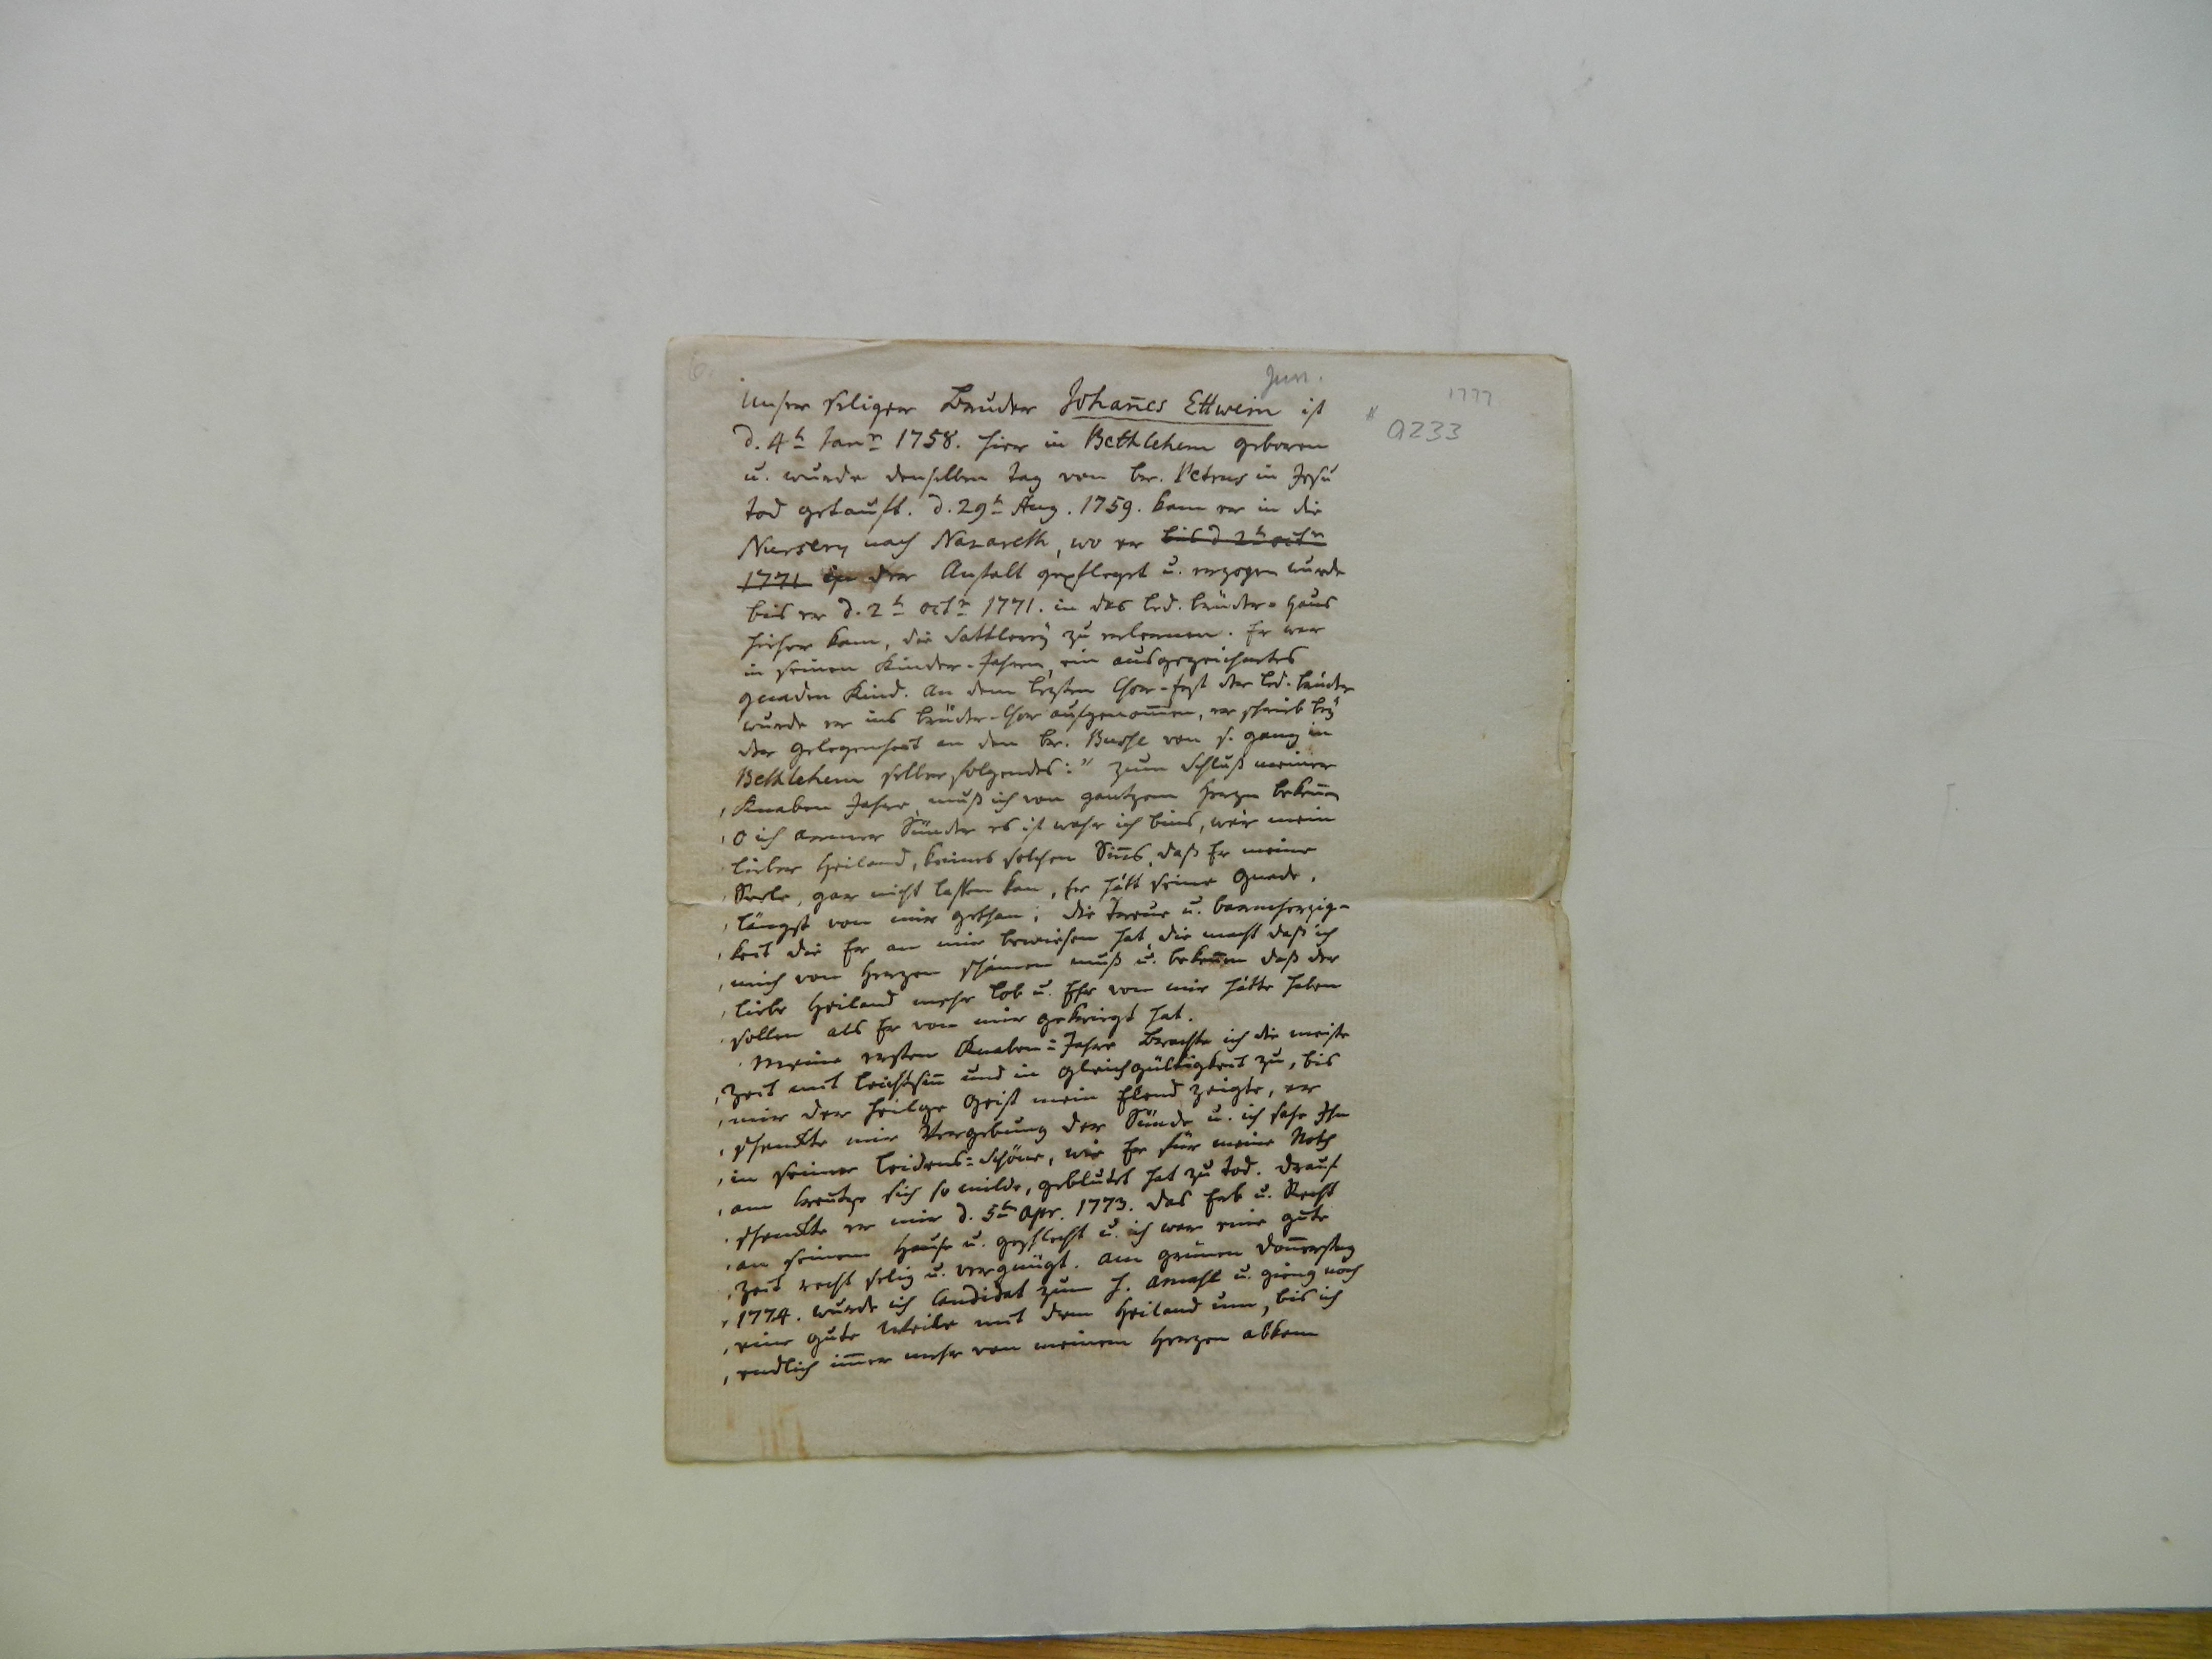 6.
Jun.
1777
# a233
Unser seliger Bruder Johan̄es Ettwein ist
d. 4t Janr 1758. hier in Bethlehem geboren
u. wurde denselben Tag von br. Petrus in Jesu
Tod getauft. d. 29t Aug. 1759. kam er in die
Nursery nach Nazareth, wo er bis d 2t octr
1771 in der Anstalt gepflegt u. erzogen wurde
bis er d. 2t octr 1771. in das led. brüder-Haus
hieher kam, die Sattlerey zu erlernen. Er war
in seinen Kinder-Jahren, ein ausgezeichnetes
gnaden Kind. An dem lezten Chor-fest der led. brüder
wurde er ins brüder-Chor aufgenom̄en, er schrieb bey
der gelegenheit an den br. Busse von s. gang in
Bethlehem selber folgendes: " zum Schluß meiner
Knaben Jahre, muß ich von gantzem Herzen beken̄en
o ich armer Sünder es ist wahr ich bins, wär mein
lieber Heiland, keines solchen Sin̄s, daß Er meine
Seele, gar nicht lassen kan, Er hätt seine Gnade,
längst von mir gethan; die Treue u. barmherzig-
keit die Er an mir bewiesen hat, die macht daß ich
mich von Herzen schämen muß u. beken̄en daß der
liebe Heiland mehr lob u. Ehr von mir hätte haben
sollen als Er von mir gekriegt hat.
Meine ersten Knaben=Jahre brachte ich die meiste
Zeit mit leichtsin̄ und in gleichgültigkeit zu, bis
mir der heilge Geist mein Elend zeigte, er
schenckte mir Vergebung der Sünde u. ich sahe Ihn
in seiner leidens=schöne, wie Er für meine Noth
am Creutze sich so milde, geblutet hat zu tod. drauf
schenckte er mir d. 5ten Apr. 1773. das Erb u. Recht
an seinem Hause u. geschlecht u. ich war eine gute
Zeit recht selig u. vergnügt. am grünen don̄erstag
1774. wurde ich Candidat zum h. Amahl u. gieng noch
eine gute Weile mit dem Heiland um, bis ich
endlich im̄er mehr von meinem Herzen abkam